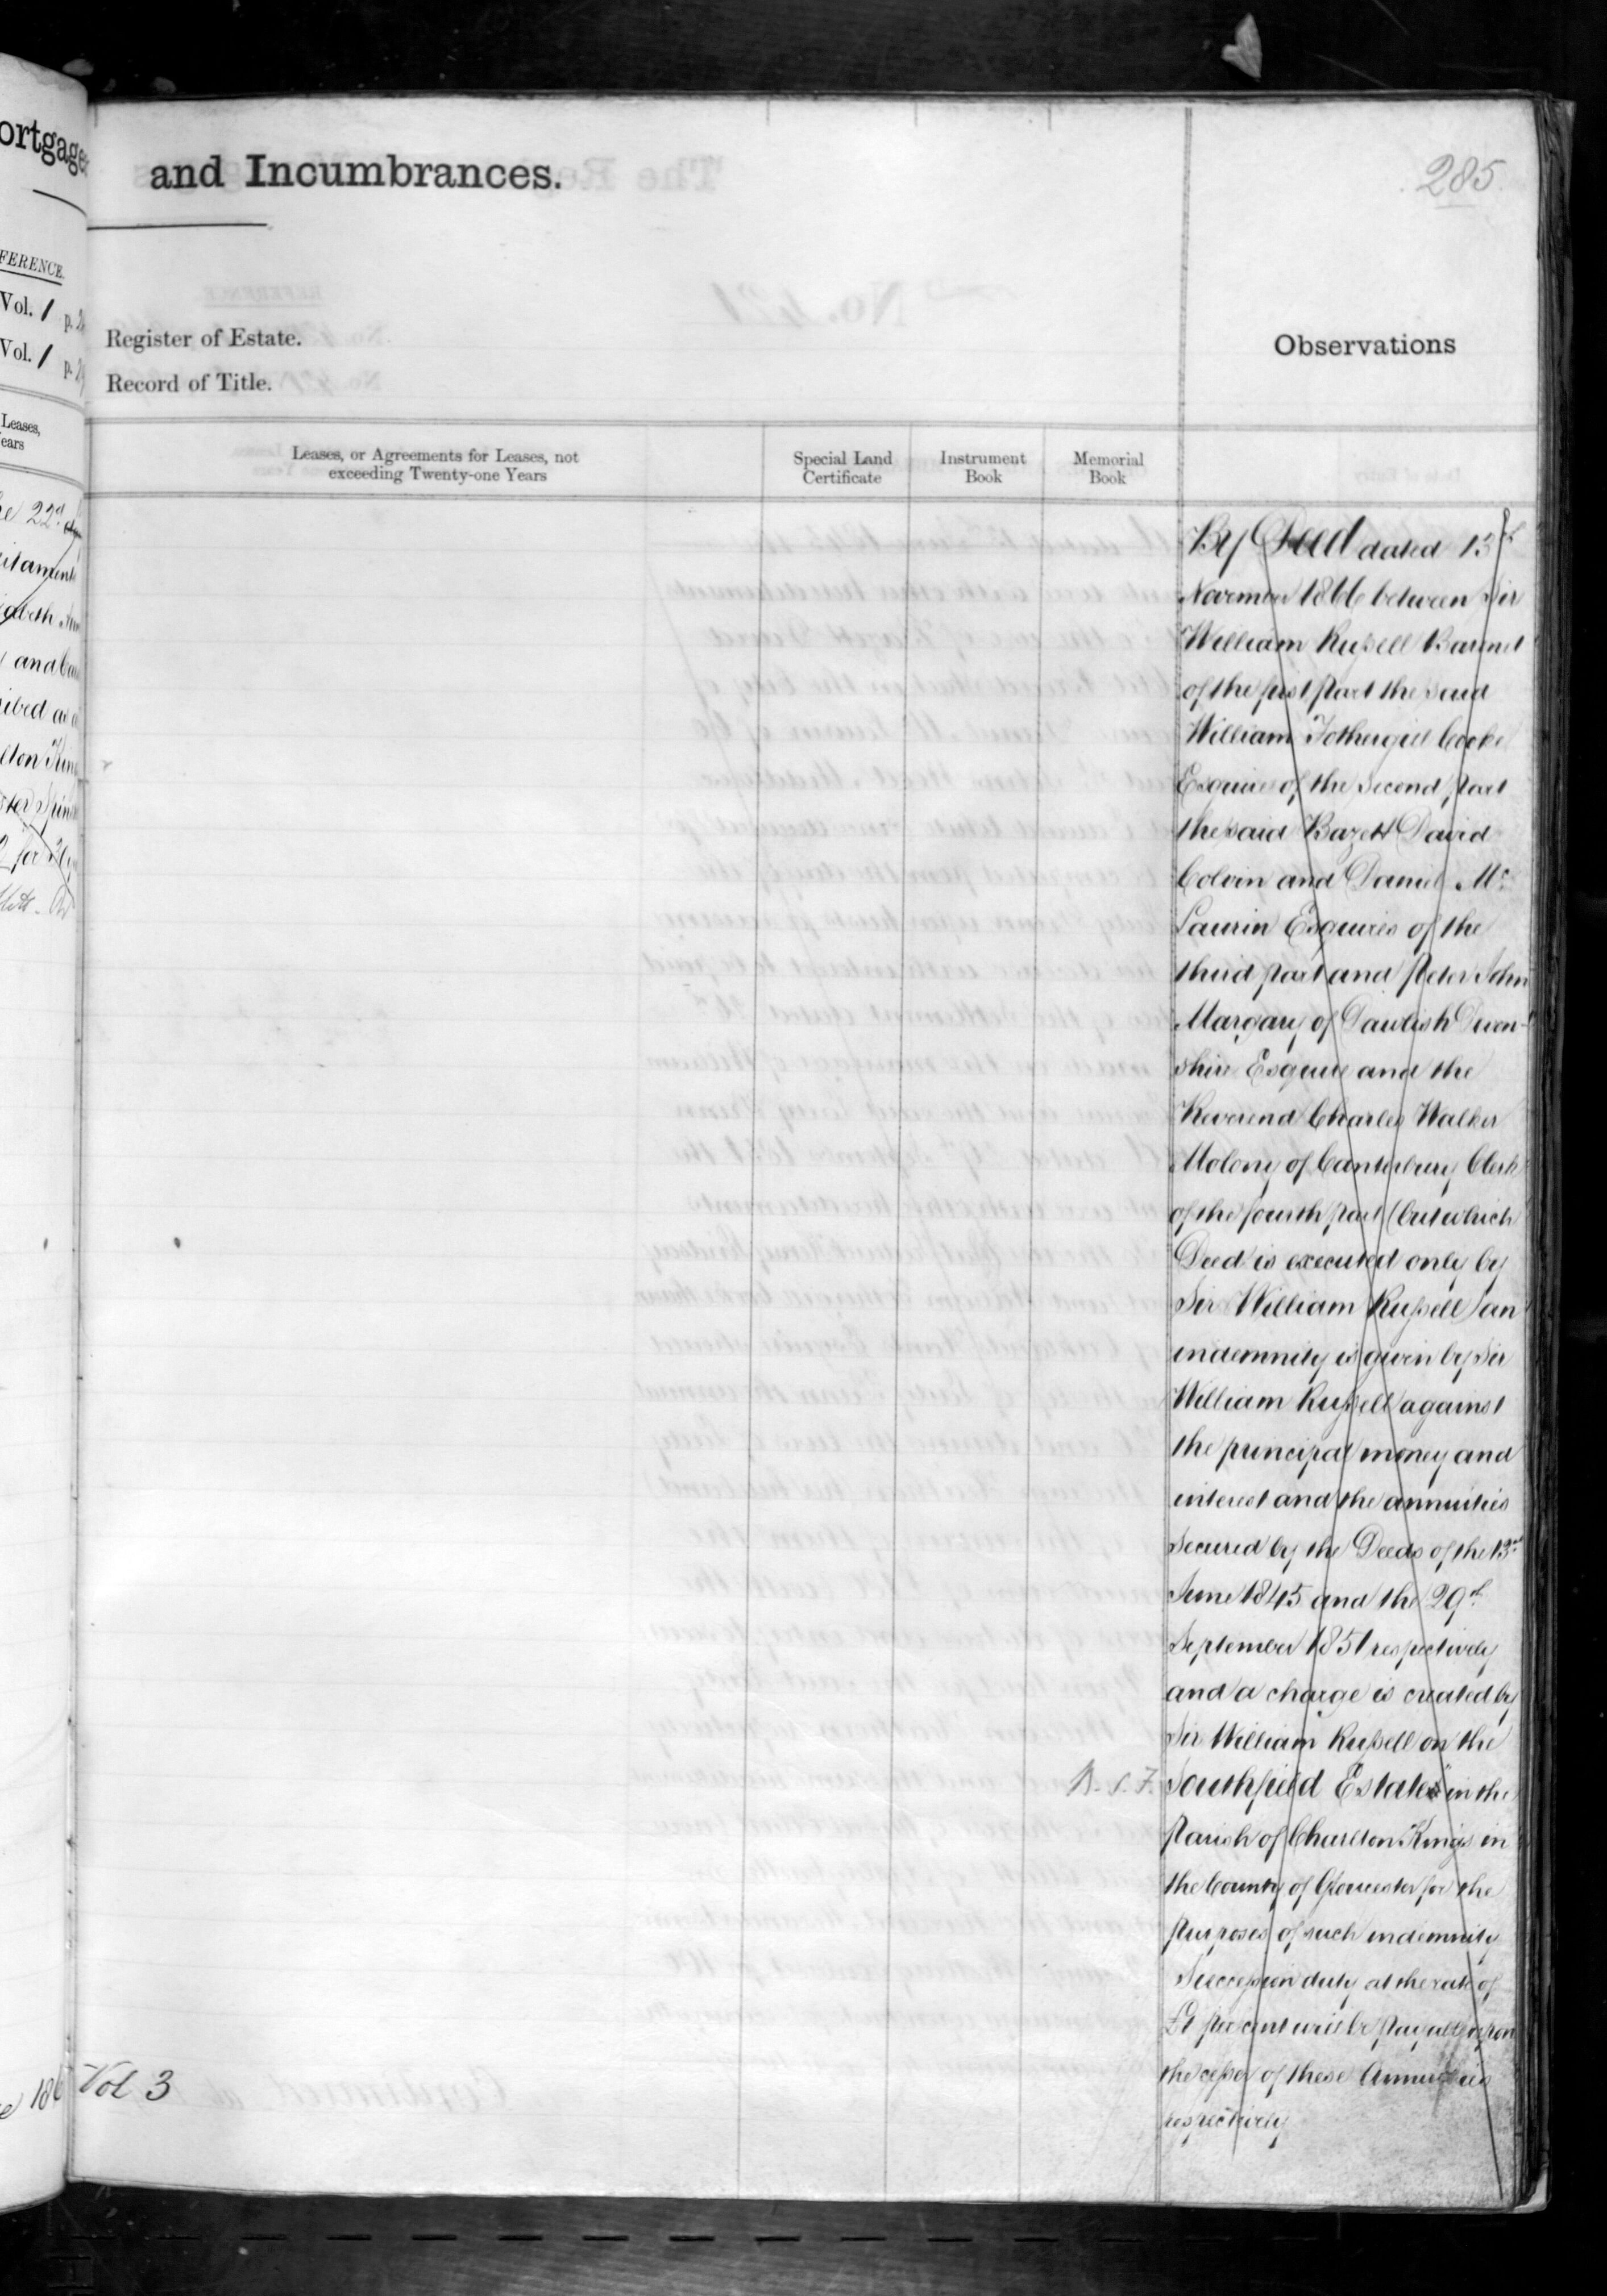 ortgages
and Incumbrances.
285.
FERENCE.
Vol. 1 p. 2
Vol. 1 p. 2
Register of Estate.
Record of Title.
Observations
Leases,
ears
Leases, or Agreements for Leases, not
exceeding Twenty-one Years
Special Land
Certificate
Instrument
Book
Memorial
Book
By Deed dated 13th
November 1866 between Sir
William Russell Baronet
of the first part the said
William Fothergill Cooke
Esquire of the second part
the said Bazett David
Colvin and Daniel Mc
Laurin Esquires of the
third part and Peter John
Margary of Dawlish Devon-
shire Esquire and the
Reverend Charles Walker
Molony of Canterbury Clerk
of the fourth part (but which
Deed is executed only by
Sir William Russell) an
indemnity is given by Sir
William Russell against
the principal money and
interest and the annuities
secured by the Deeds of the 13th
June 1845 and the 29th
September 1851 respectively
and a charge is created by
Sir William Russell on the
Southfield Estate in the
Parish of Charlton Kings in
the County of Gloucester for the
purposes of such indemnity
Succession duty at the rate of
£1 per cent will be payable upon
the cesser of these Annuities
respectively
Vol 3